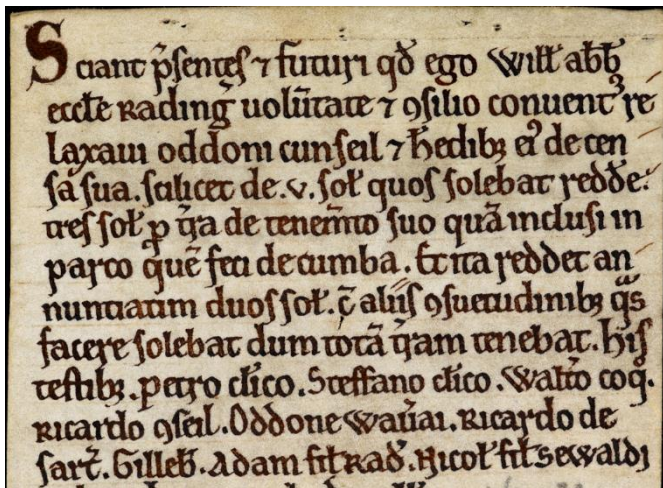 Sciant p̄sentes ⁊ futuri qđ ego Willꝉ abb̄
eccꝉe Radinḡ uolūtate ⁊ ꝯsilio conuentꝰ re
laxaui oddom cunseil ⁊ ħedibꝫ eiꝰ de cen
sa sua. scilicet de .v. soꝉ quos solebat redđe.
tres soꝉ ꝑ t̄ra de tenem̄to suo quā inclusi in
parco quē feci de cumba. Et ita reddet an
nuntiatim duos soꝉ. c̄ aliis ꝯsuetudinibꝫ qᵃs
facere solebat dum totā t̄ram tenebat. His
testibꝫ. petro cꝉico. Steffano cꝉico. Walt̄o coq̄.
Ricardo ꝯseil. Oddone Wau̅ai. Ricardo de
sart̄. Gilleb̄. Adam fiꝉ Rađ. Nicoꝉ fiꝉ sewaldi